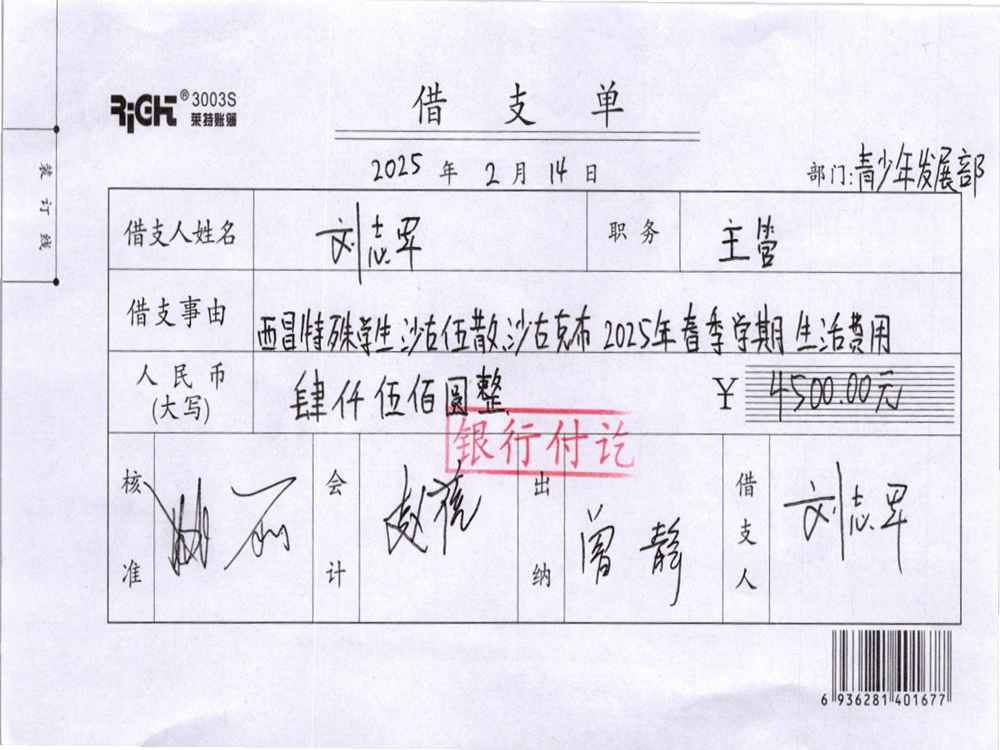 RIGHT® 3003S
莱特账簿
借支单
2025年2月14日
部门:青少年发展部
装订线
借支人姓名 刘志军 职务 主管
借支事由 西昌特殊学生沙古伍散、沙古克布2025年春季学期生活费用
人民币(大写) 肆仟伍佰圆整 ¥4500.00元
银行付讫
核准 会计 出纳 曾静 借支人 刘志军
6 936281 401677